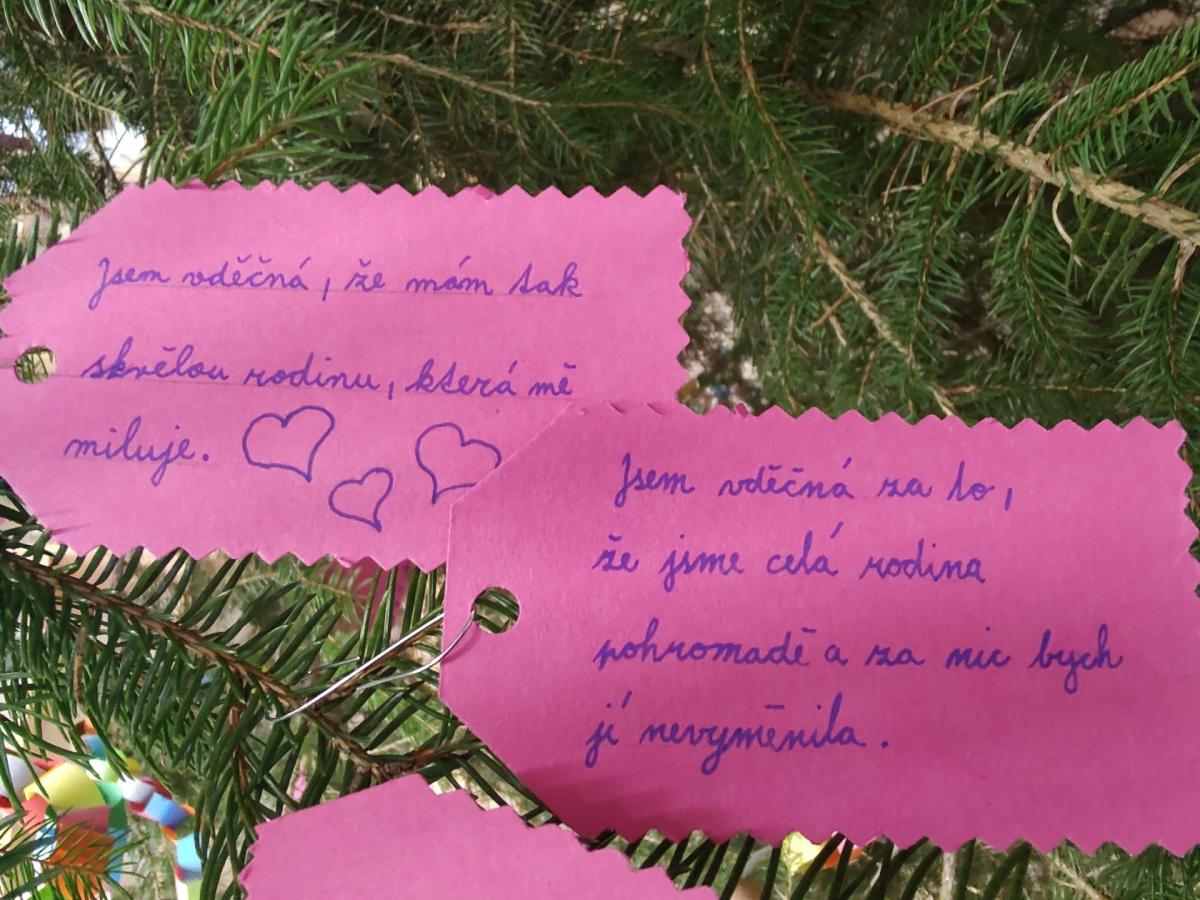 Jsem vděčná, že mám tak
skvělou rodinu, která mě
miluje.
Jsem vděčná za to,
že jsme celá rodina
pohromadě a za nic bych
jí nevyměnila.